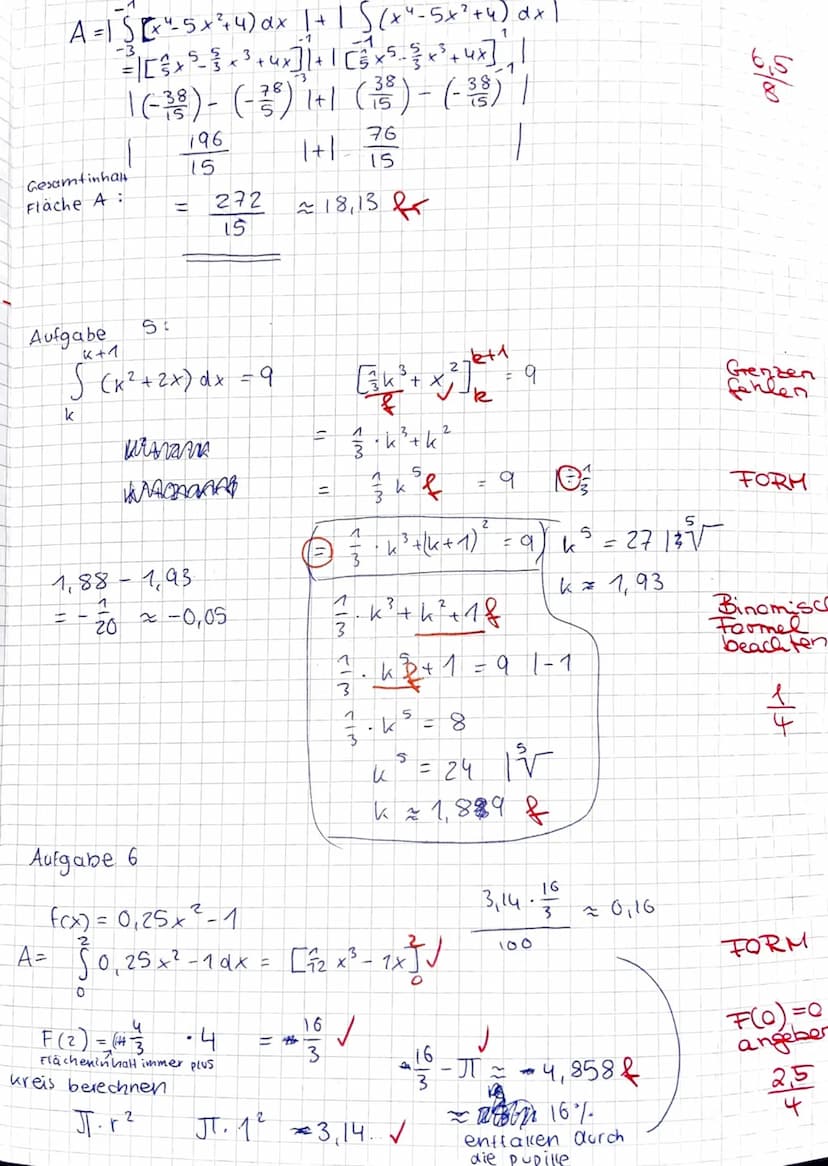 A = | ∫₋₃⁻¹ [x⁴-5x²+4) dx | + | ∫₋₁ (x⁴-5x²+4) dx |
= | [1/5 x⁵ - 5/3 x³ + 4x]₋₃⁻¹ | + | [1/5 x⁵ - 5/3 x³ + 4x]₋₁¹ |
| (-38/15) - (-78/5) | + | (38/15) - (-38/15) |
6,5/8
| 196/15 | + | 76/15 |
Gesamtinhalt
Fläche A :
= 272/15 ≈ 18,13 fr
Aufgabe 5:
∫ₖᵏ⁺¹ (x²+2x) dx = 9 [1/3 k³ + x²]ₖᵏ⁺¹ = 9
f ✓
Grenzen
fehlen
= 1/3 · k³ + k²
= 1/3 k⁵ f = 9 | : 1/3
FORM
= 1/3 · k³ + (k+1)² = 9 k⁵ = 27 | ⁵√
1,88 - 1,93
k ≈ 1,93
= - 1/20 ≈ -0,05
1/3 · k³ + k² + 1 f
Binomisc
Formel
beachten
1/3 · k⁵ f + 1 = 9 | -1
1/4
1/3 · k⁵ = 8
k⁵ = 24 | ⁵√
k ≈ 1,89 f
Aufgabe 6
f(x) = 0,25x² - 1
3,14 · 16/3 / 100 ≈ 0,16
A = ∫₀² 0,25x² - 1 dx = [1/12 x³ - 1x]₀² ✓
FORM
F(2) = 4/3 · 4 = 16/3 ✓
F(0)=0
angeben
Flächeninhalt immer plus
16/3 - π ≈ - 4,858 f
✓
2,5/4
Kreis berechnen
π · r² π · 1² ≈ 3,14 ✓
≈ 16%
entfallen durch
die Pupille